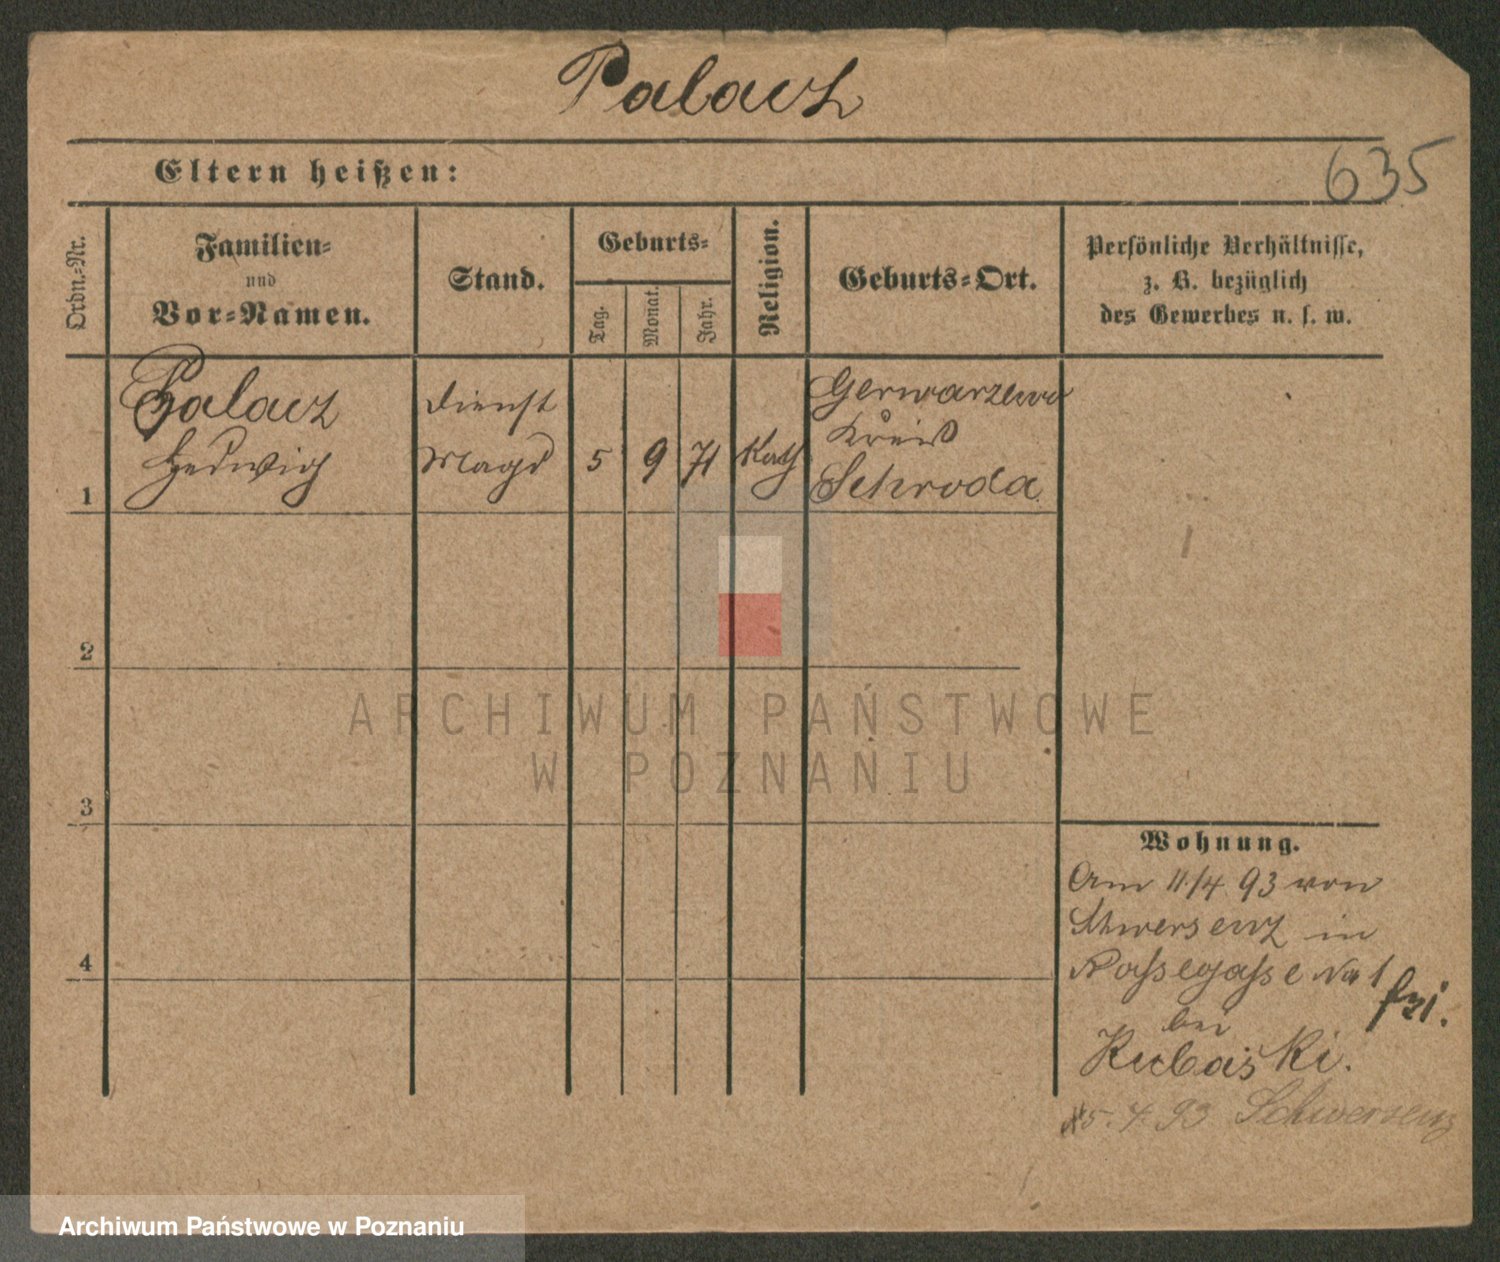 Palacz
Eltern heißen:
635
Ordn.-Nr.
Familien-
und
Vor-Namen.
Stand.
Geburts-
Tag.
Monat.
Jahr.
Religion.
Geburts-Ort.
Persönliche Verhältnisse,
z. B. bezüglich
des Gewerbes u. s. w.
1
Palacz
Hedwig
Dienst
Magd
5
9
71
Kath
Gerwarzewo
Kreis
Schroda
2
3
4
Wohnung.
Am 11/4 93 von
Schwersenz in
No 1
bei
Kubaski.
5. 7. 93 Schwersenz
ARCHIWUM PAŃSTWOWE
W POZNANIU
Archiwum Państwowe w Poznaniu